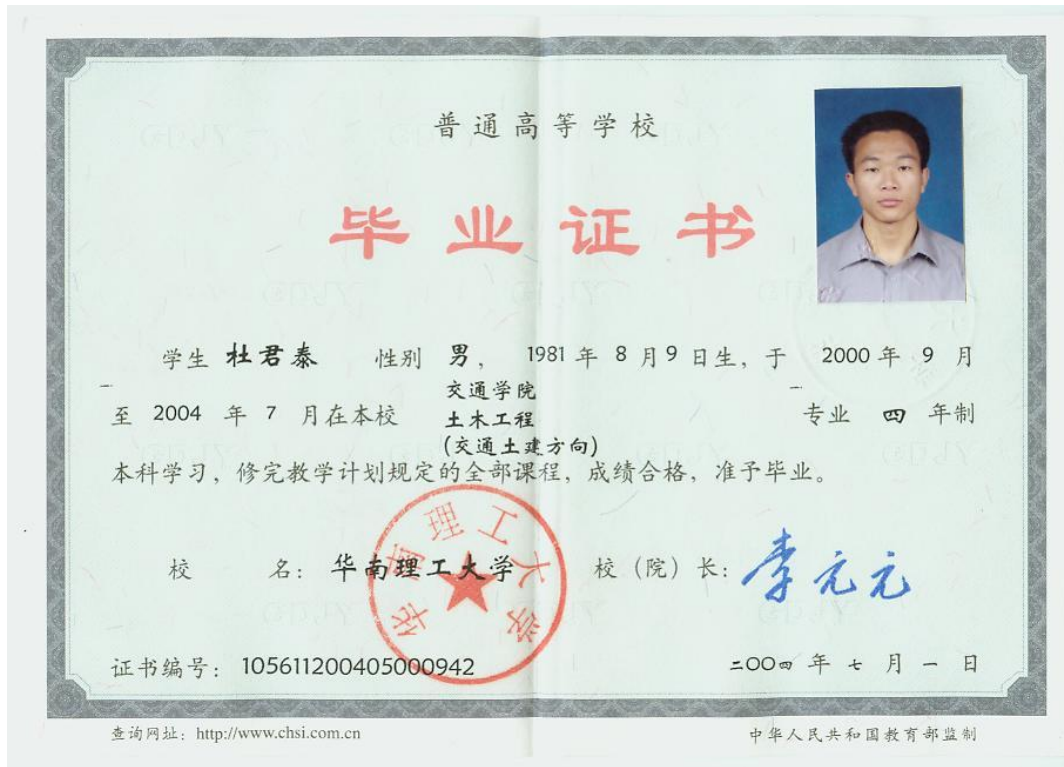 普通高等学校
毕业证书
学生 杜君泰 性别 男， 1981 年 8 月 9 日生，于 2000 年 9 月
至 2004 年 7 月在本校 交通学院
土木工程
(交通土建方向) 专业 四 年制
本科学习，修完教学计划规定的全部课程，成绩合格，准予毕业。
校 名：华南理工大学 校（院）长：李元元
华南理工大学
证书编号：105611200405000942 二〇〇四 年 七 月 一 日
查询网址：http://www.chsi.com.cn 中华人民共和国教育部监制